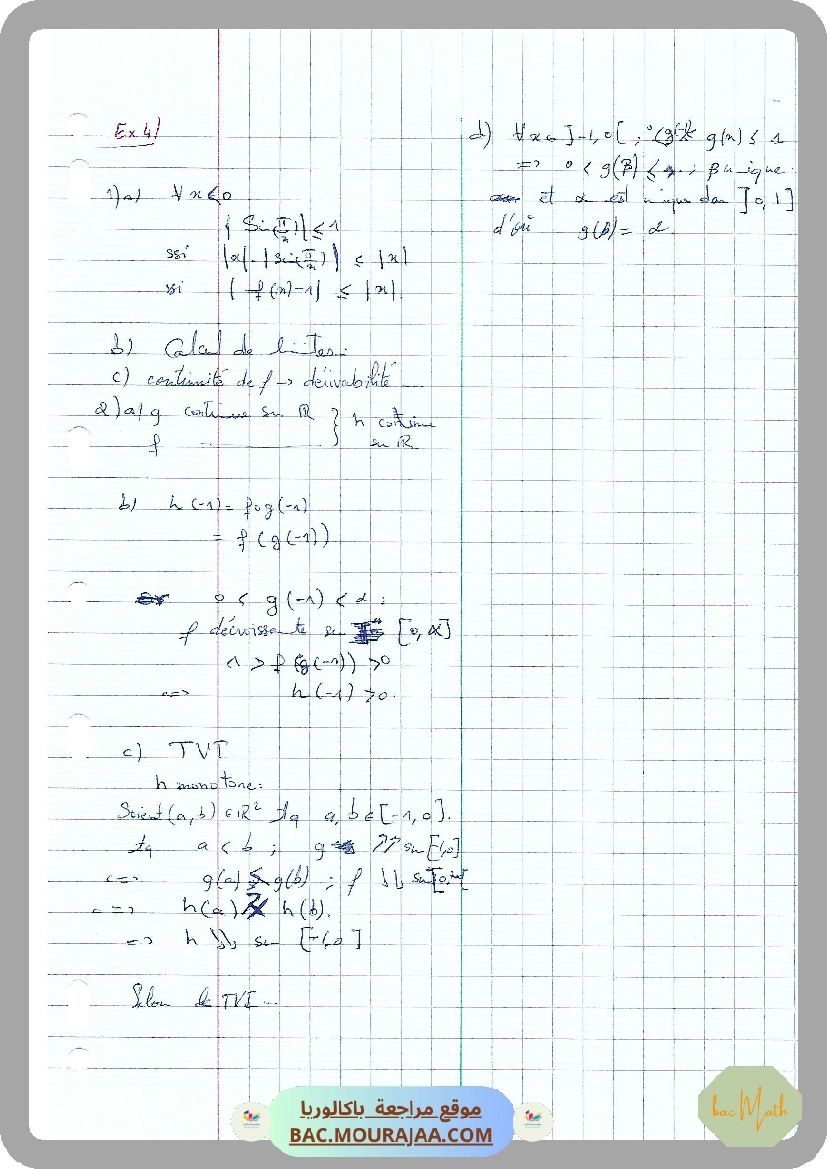 Ex 4/
1) a) ∀ x < 0
| Sin(π/x) | ≤ 1
ssi |x| · | Sin(π/x) | ≤ |x|
ssi | f(x) - 1 | ≤ |x|
b) Calcul de limites
c) continuité de f → dérivabilité ...
2) a) g continue sur ℝ } h continue
f ——— } sur ℝ
b) h(-1) = fog(-1)
= f(g(-1))
0 < g(-1) < α ;
f décroissante sur [0, α]
1 > f(g(-1)) > 0
<=> h(-1) > 0.
c) TVI
h monotone:
Soient (a, b) ∈ ℝ² tq a, b ∈ [-1, 0].
tq a < b ; g ↗↗ sur [-1, 0]
<=> g(a) < g(b) ; f ↓↓ sur
<=> h(a) > h(b).
=> h ↘↘ sur [-1, 0]
Selon le TVI ...
d) ∀ x ∈ ]-1, 0[ ; g(x) ≤ 1
=> 0 < g(β) ≤ ; β unique
et α est unique dans ]0, 1]
d'où g(β) = α
موقع مراجعة باكالوريا
BAC.MOURAJAA.COM
bac Math